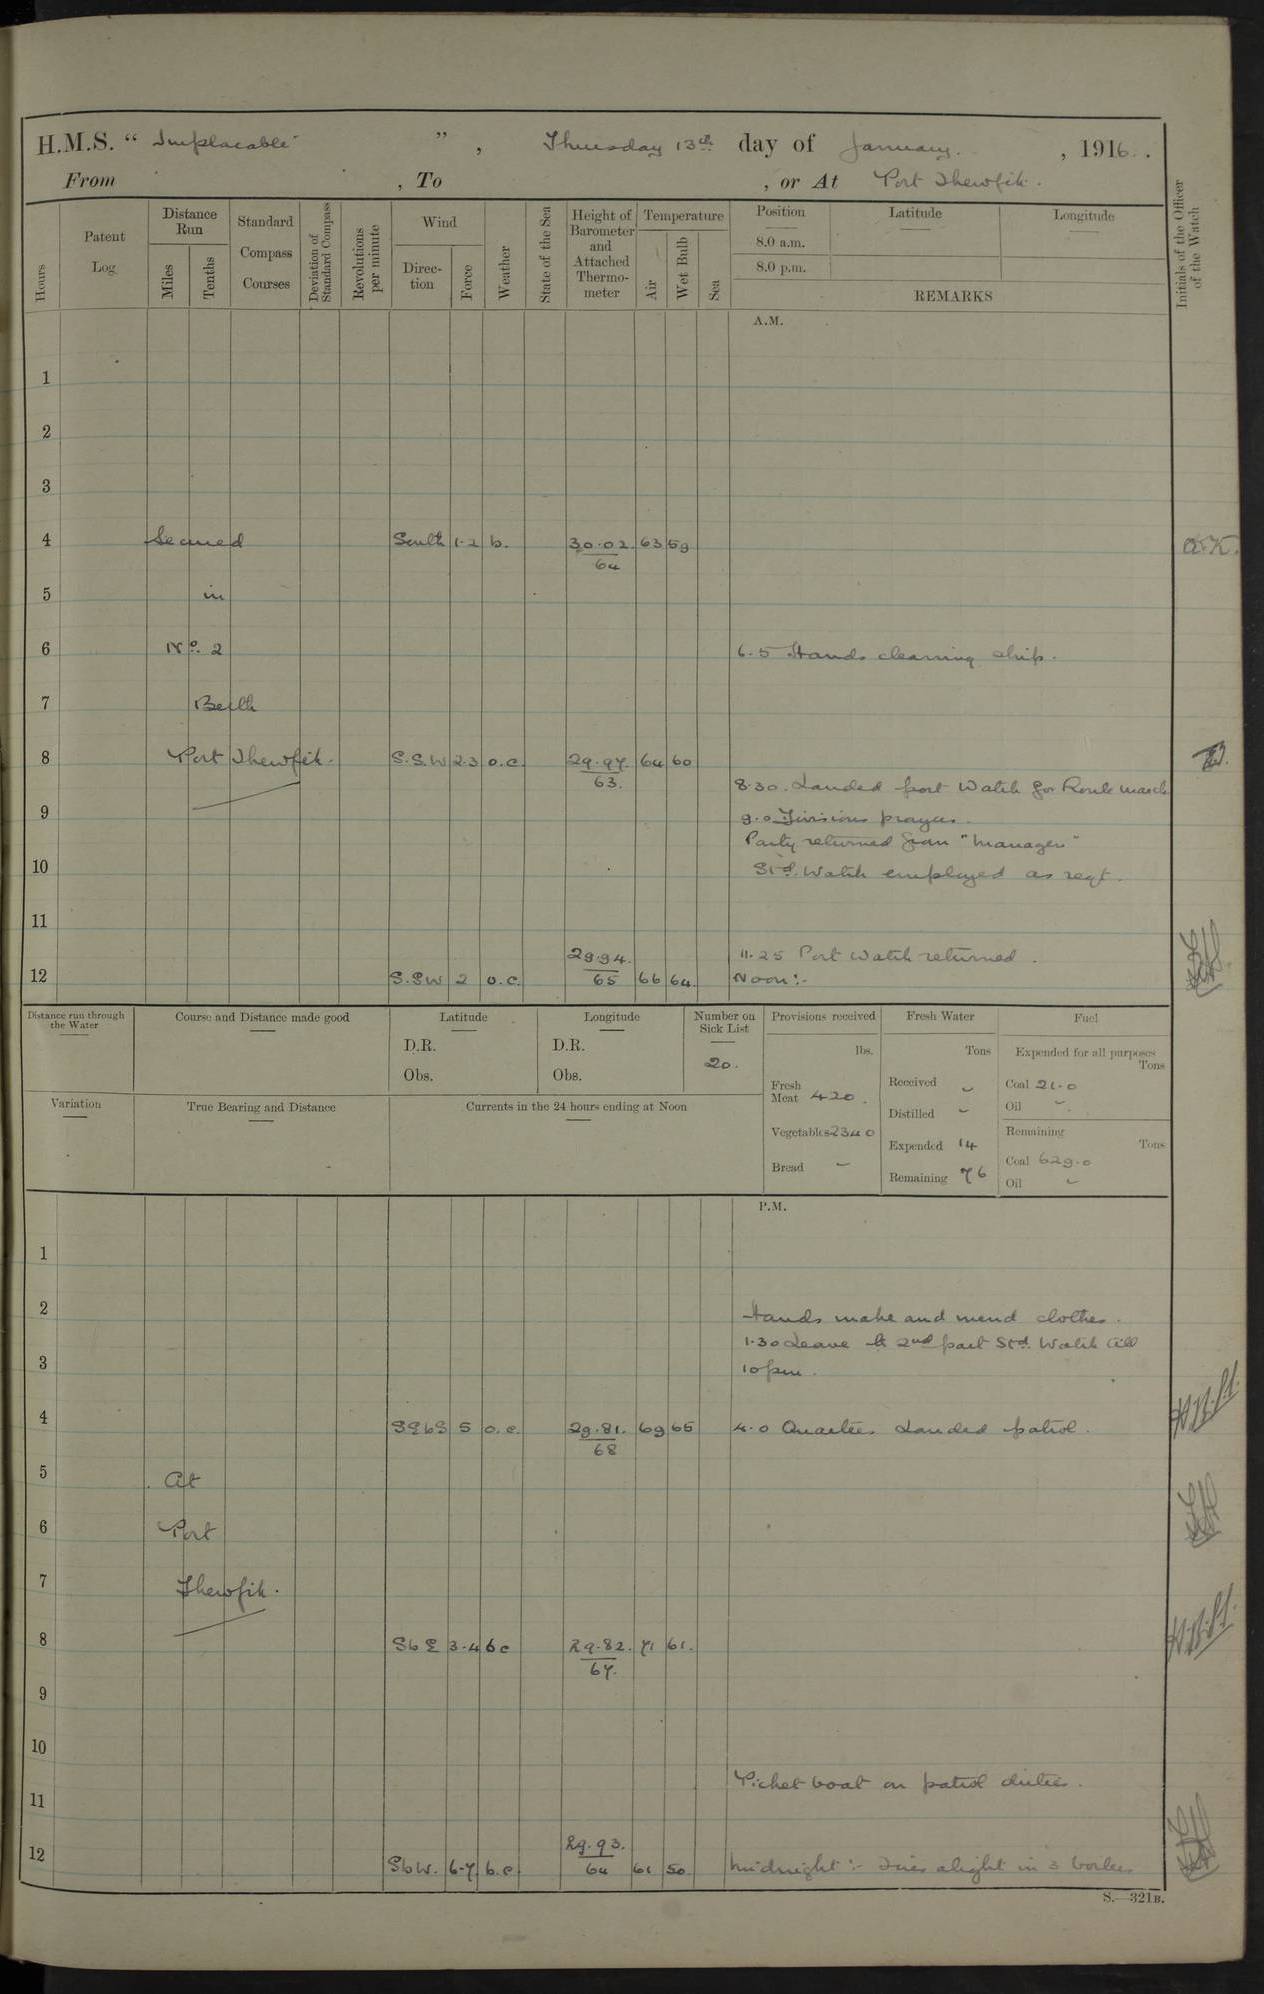 H.M.S. “ Implacable ” , Thursday 13th day of January. , 1916 .
From , To , or At Port Thewfik.
Hours
Patent Log
Distance Run
Miles
Tenths
Standard Compass Courses
Deviation of Standard Compass
Revolutions per minute
Wind
Direction
Force
Weather
State of the Sea
Height of Barometer and Attached Thermometer
Temperature
Air
Wet Bulb
Sea
Position
8.0 a.m.
8.0 p.m.
Latitude
Longitude
REMARKS
Initials of the Officer of the Watch
A.M.
1
2
3
4 Secured South 1-2 b. 30.02. 63 59
64
5 in
6 No. 2 6.5 Hands cleaning ship.
7 Berth
8 Port Thewfik. S.S.W 2.3 o.c. 29.97. 64 60
63.
8.30. Landed port Watch for Route march
9 9.0 Divisions prayers.
Party returned from "Managem"
10 Std. Watch employed as reqt.
11
29.94. 11.25 Port Watch returned.
12 S.SW 2 o.c. 65 66 64. Noon:-
Distance run through the Water
Course and Distance made good
Latitude
D.R.
Obs.
Longitude
D.R.
Obs.
Number on Sick List
20.
Provisions received
lbs.
Fresh Meat 420.
Vegetables 2340
Bread -
Fresh Water
Tons
Received -
Distilled -
Expended 14
Remaining 76
Fuel
Expended for all purposes
Tons
Coal 21.0
Oil -
Remaining
Tons
Coal 629.0
Oil -
Variation
True Bearing and Distance
Currents in the 24 hours ending at Noon
P.M.
1
2 Hands make and mend clothes.
1.30 Leave to 2nd part Std. Watch till
3 10 pm.
4 SEbS 5 o.c. 29.81. 69 65 4.0 Quarters Landed patrol.
68
5 At
6 Port
7 Thewfik.
8 SbE 3-4 bc 29.82. 71 61.
67.
9
10
Picket boat on patrol duties.
11
29.93.
12 SbW. 6-7 b.c. 64 61 50. Midnight:- Fires alight in 3 boilers
S.—321B.